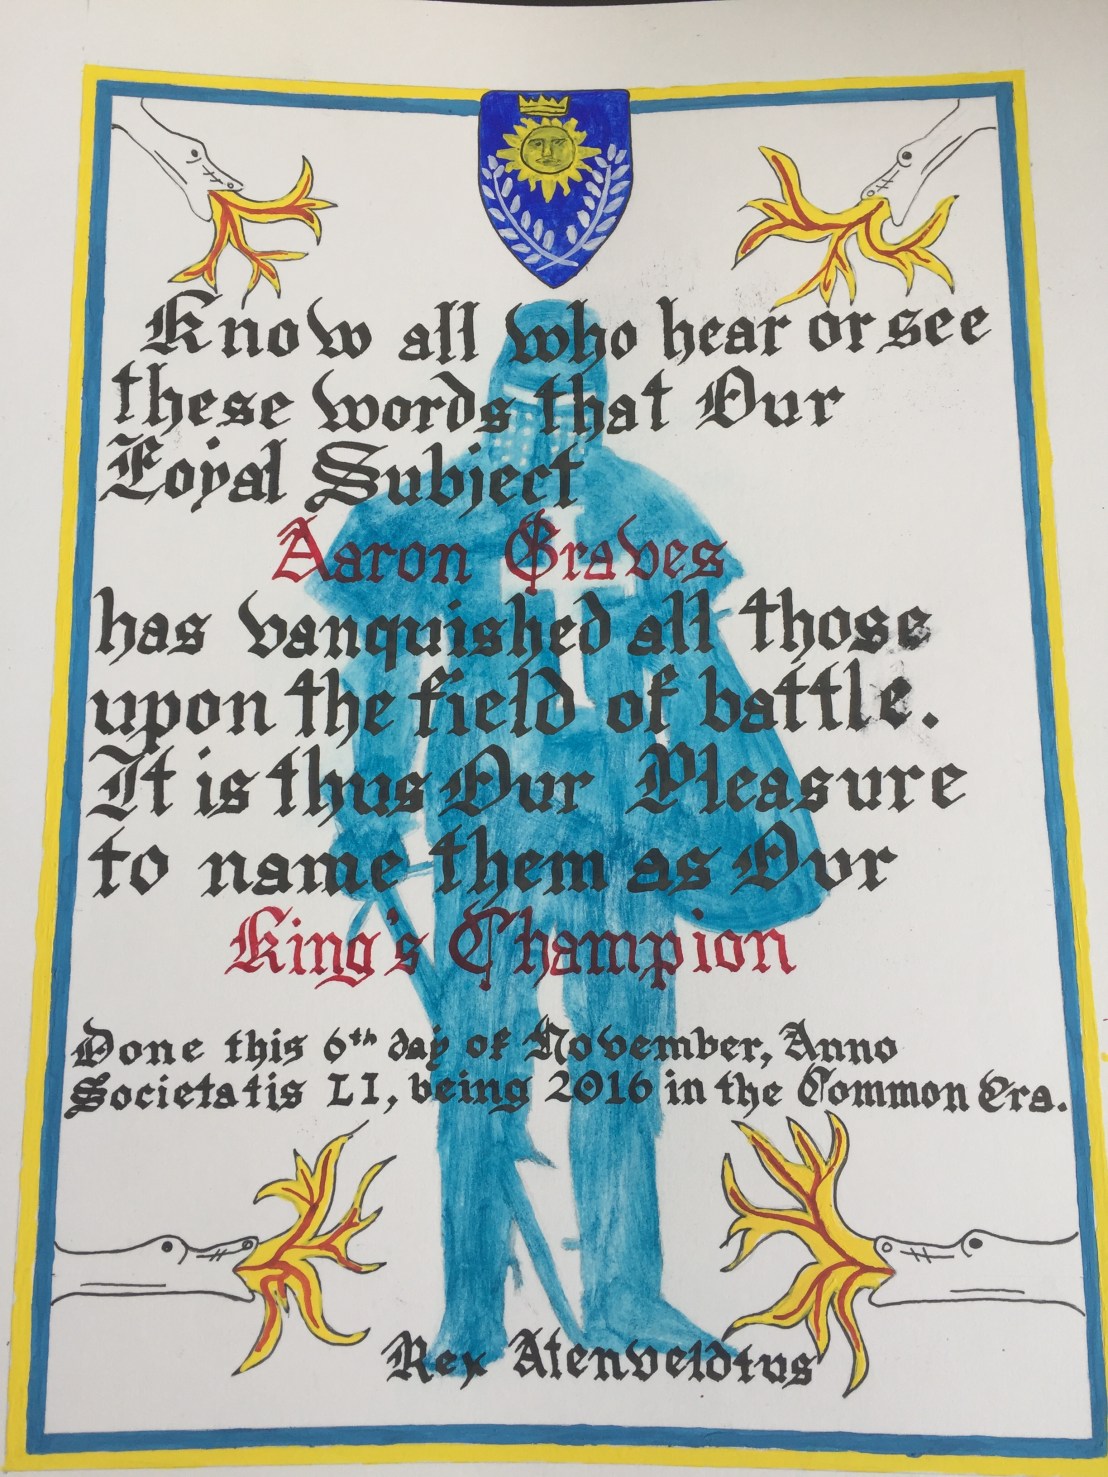 Know all who hear or see
these words that Our
Loyal Subject
Aaron Graves
has vanquished all those
upon the field of battle.
It is thus Our Pleasure
to name them as Our
King's Champion
Done this 6th day of November, Anno
Societatis LI, being 2016 in the Common Era.
Rex Atenveldtus